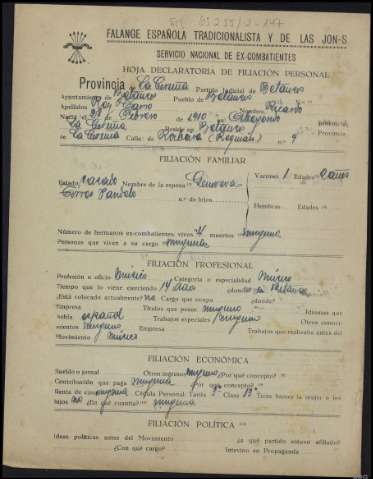 FALANGE ESPAÑOLA TRADICIONALISTA Y DE LAS JON-S
SERVICIO NACIONAL DE EX-COMBATIENTES
HOJA DECLARATORIA DE FILIACIÓN PERSONAL
Provincia de La Coruña Partido Judicial de Betanzos
Ayuntamiento de Betanzos Pueblo de Betanzos
Apellidos Nombre Ricardo
Nació 28 Febrero de 1910 en
La Coruña Reside en Betanzos
de La Coruña Calle: de n.º 9
FILIACIÓN FAMILIAR
Estado casado Nombre de la esposa Genoveva Varones 1 Edades
n.º de hijos Hembras Edades
Número de hermanos ex-combatientes vivos 4 muertos ninguno
Personas que viven a su cargo ninguna
FILIACIÓN PROFESIONAL
Profesión u oficio músico Categoría o especialidad músico
Tiempo que lo viene ejerciendo 14 años
¿Está colocado actualmente? no Cargo que ocupa ¿dónde?
Empresa Títulos que posee ninguno Idiomas que
habla español Trabajos especiales ninguno Otros conoci-
mientos ninguno Empresa Trabajos que realizaba antes del
Movimiento músico
FILIACIÓN ECONÓMICA
Sueldo o jornal Otros ingresos ninguno ¿Por qué concepto?
Contribución que paga ninguna ¿Por qué concepto?
Renta de casa Cédula Personal Tarifa Clase 13ª Tiene bienes la mujer o los
hijos no ¿En qué cuantía? ninguna
FILIACIÓN POLÍTICA
Ideas políticas antes del Movimiento ¿a qué partido estuvo afiliado?
¿Con qué cargo? Intervino en Propaganda